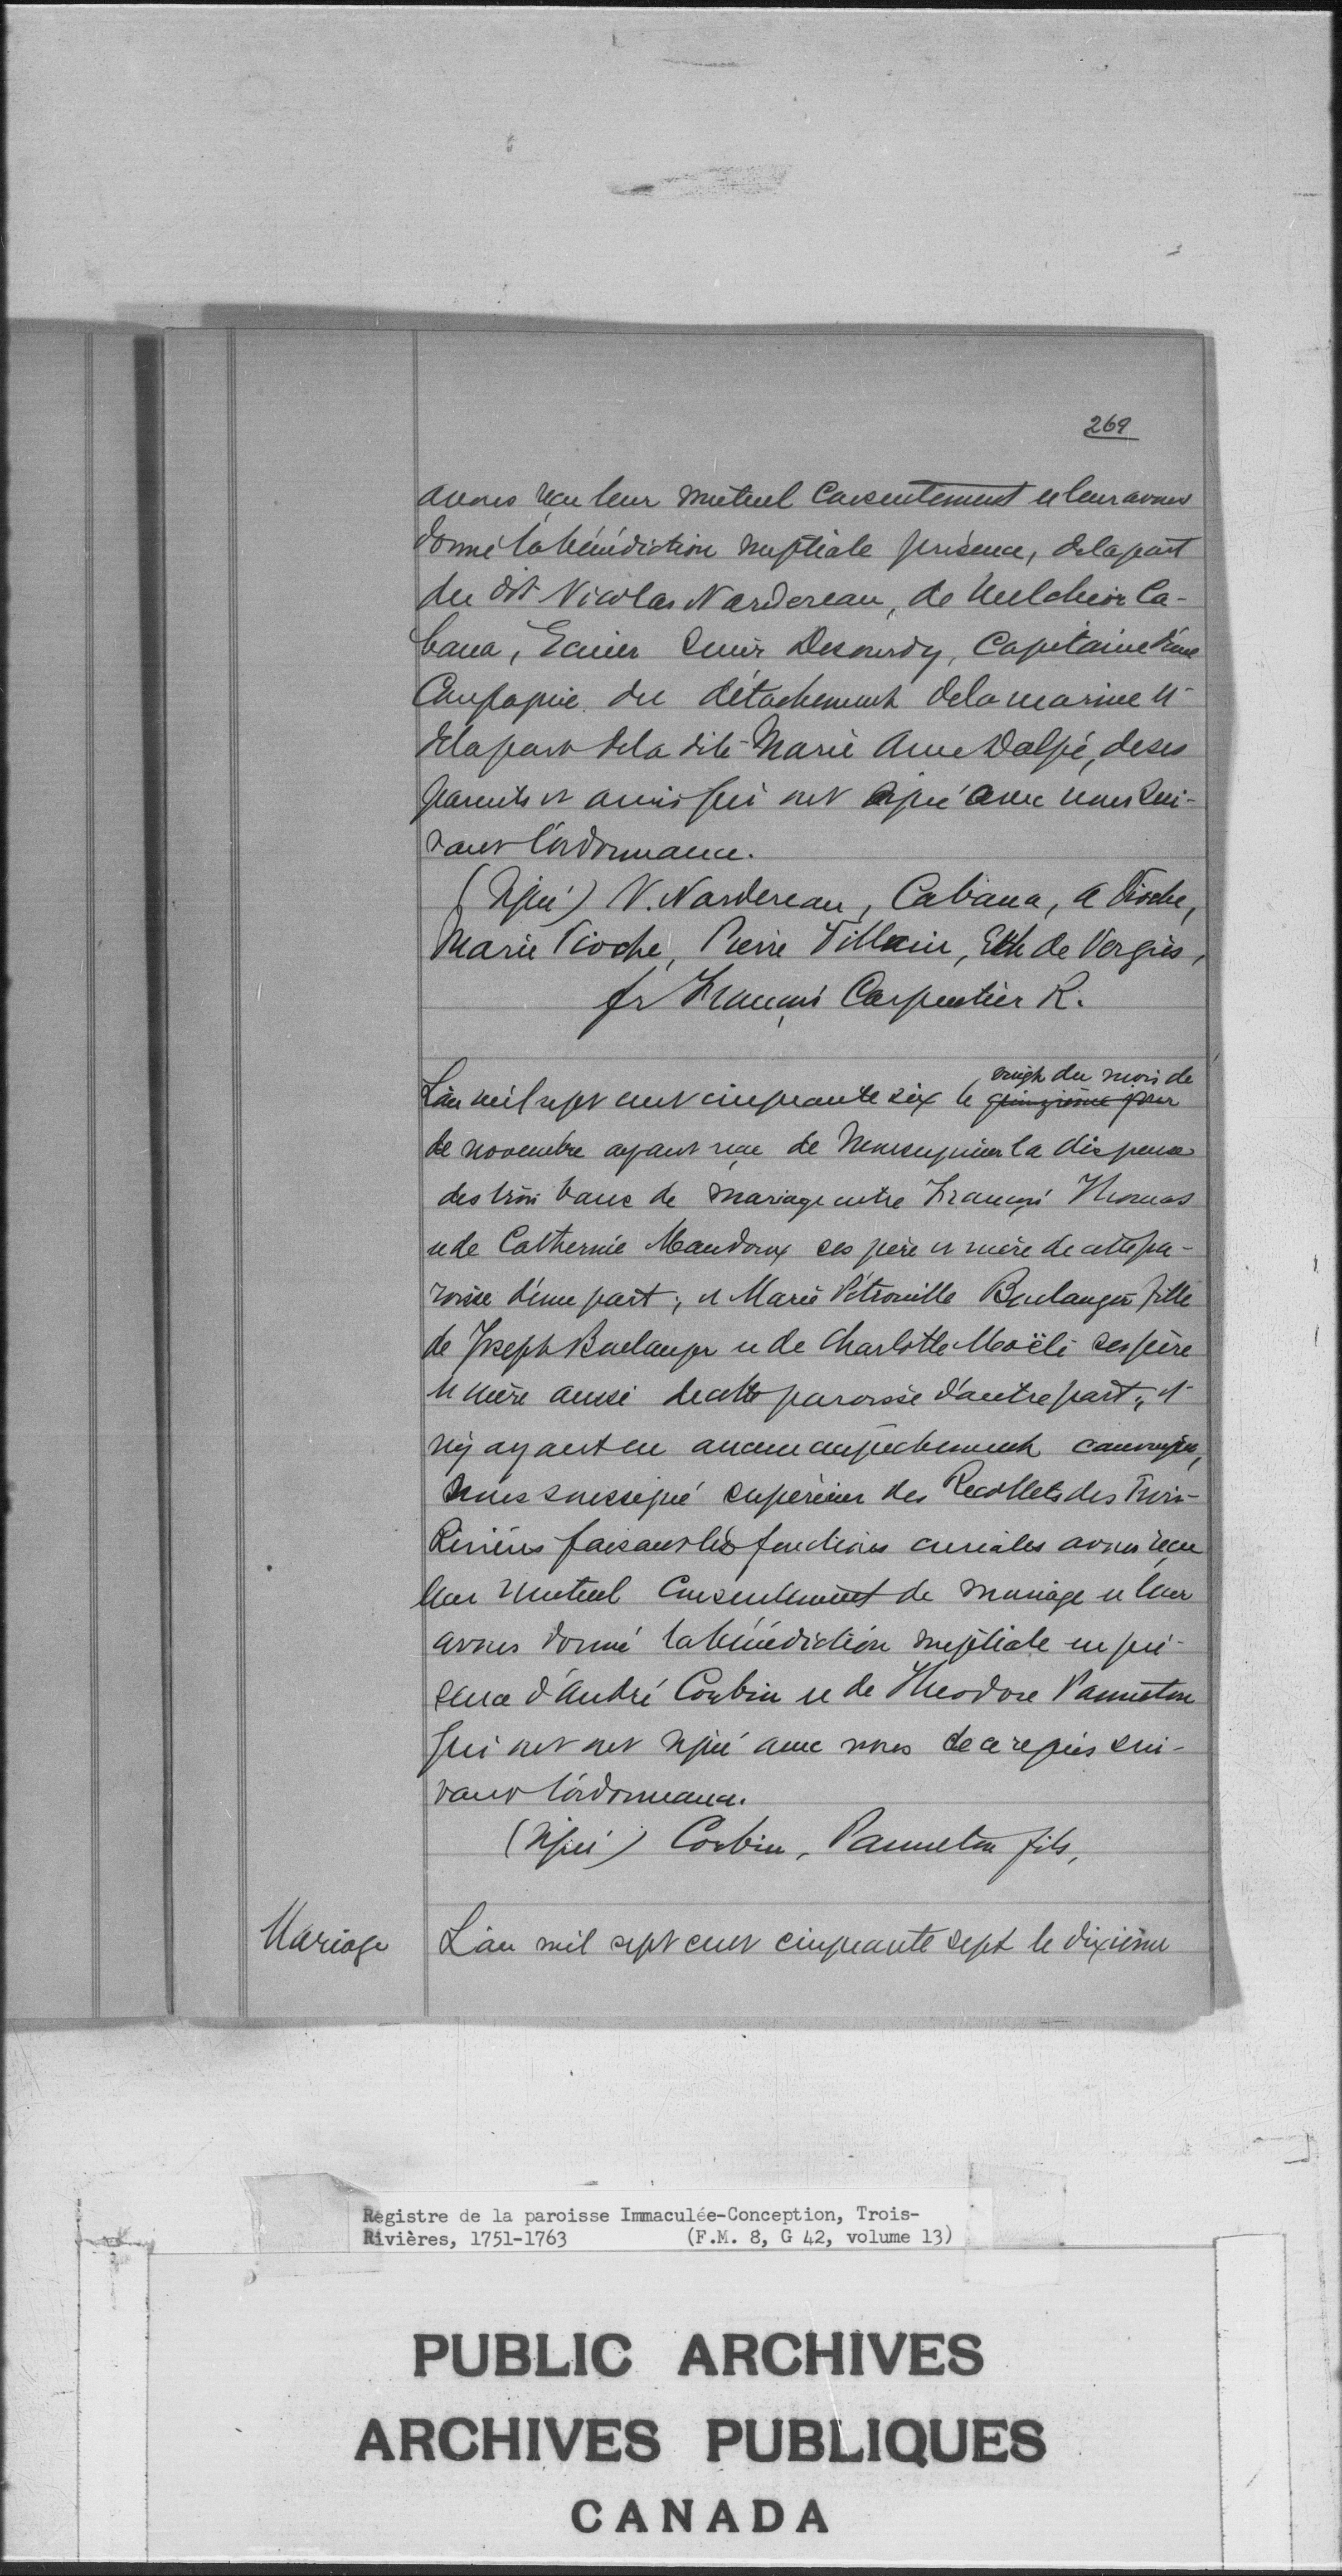 269
avons reçu leur mutuel consentement et leur avons
donné la bénédiction nuptiale présence, de la part
du dit Nicolas Nardereau, de Melchior Ca-
bana, Ecuier Sieur Desourdy, Capitaine d'une
Compagnie du détachement de la marine et
de la part de la dite Marie Anne Dalpé, de ses
parents et amis qui ont signé avec nous sui-
vant l'ordonnance.
(Signé) N. Nardereau, Cabana, A Pioche,
Marie Pioche, Pierre Villain, de Vergès,
fr François Carpentier R.
vingt du mois de
L'an mil sept cent cinquante six le quinzième jour
de novembre ayant reçu de Monseigneur la dispense
des trois bans de mariage entre François Thomas
et de Catherine Maudoux ses père et mère de cette pa-
roisse d'une part; et Marie Pétronille Boulanger fille
de Joseph Boulanger et de Charlotte Maëli ses père
et mère aussi de cette paroisse d'autre part; et
n'y ayant eu aucun empêchement canonique,
Nous soussigné supérieur des Recollets des Trois-
Rivières faisant les fonctions curiales avons reçu
leur mutuel consentement de mariage et leur
avons donné la bénédiction nuptiale en pré-
sence d'André Corbin et de Theodore Panneton
qui ont ont signé avec nous de ce requis sui-
vant l'ordonnance.
(Signé) Corbin, Panneton fils,
Mariage
L'an mil sept cent cinquante sept le dixième
Registre de la paroisse Immaculée-Conception, Trois-
Rivières, 1751-1763 (F.M. 8, G 42, volume 13)
PUBLIC ARCHIVES
ARCHIVES PUBLIQUES
CANADA